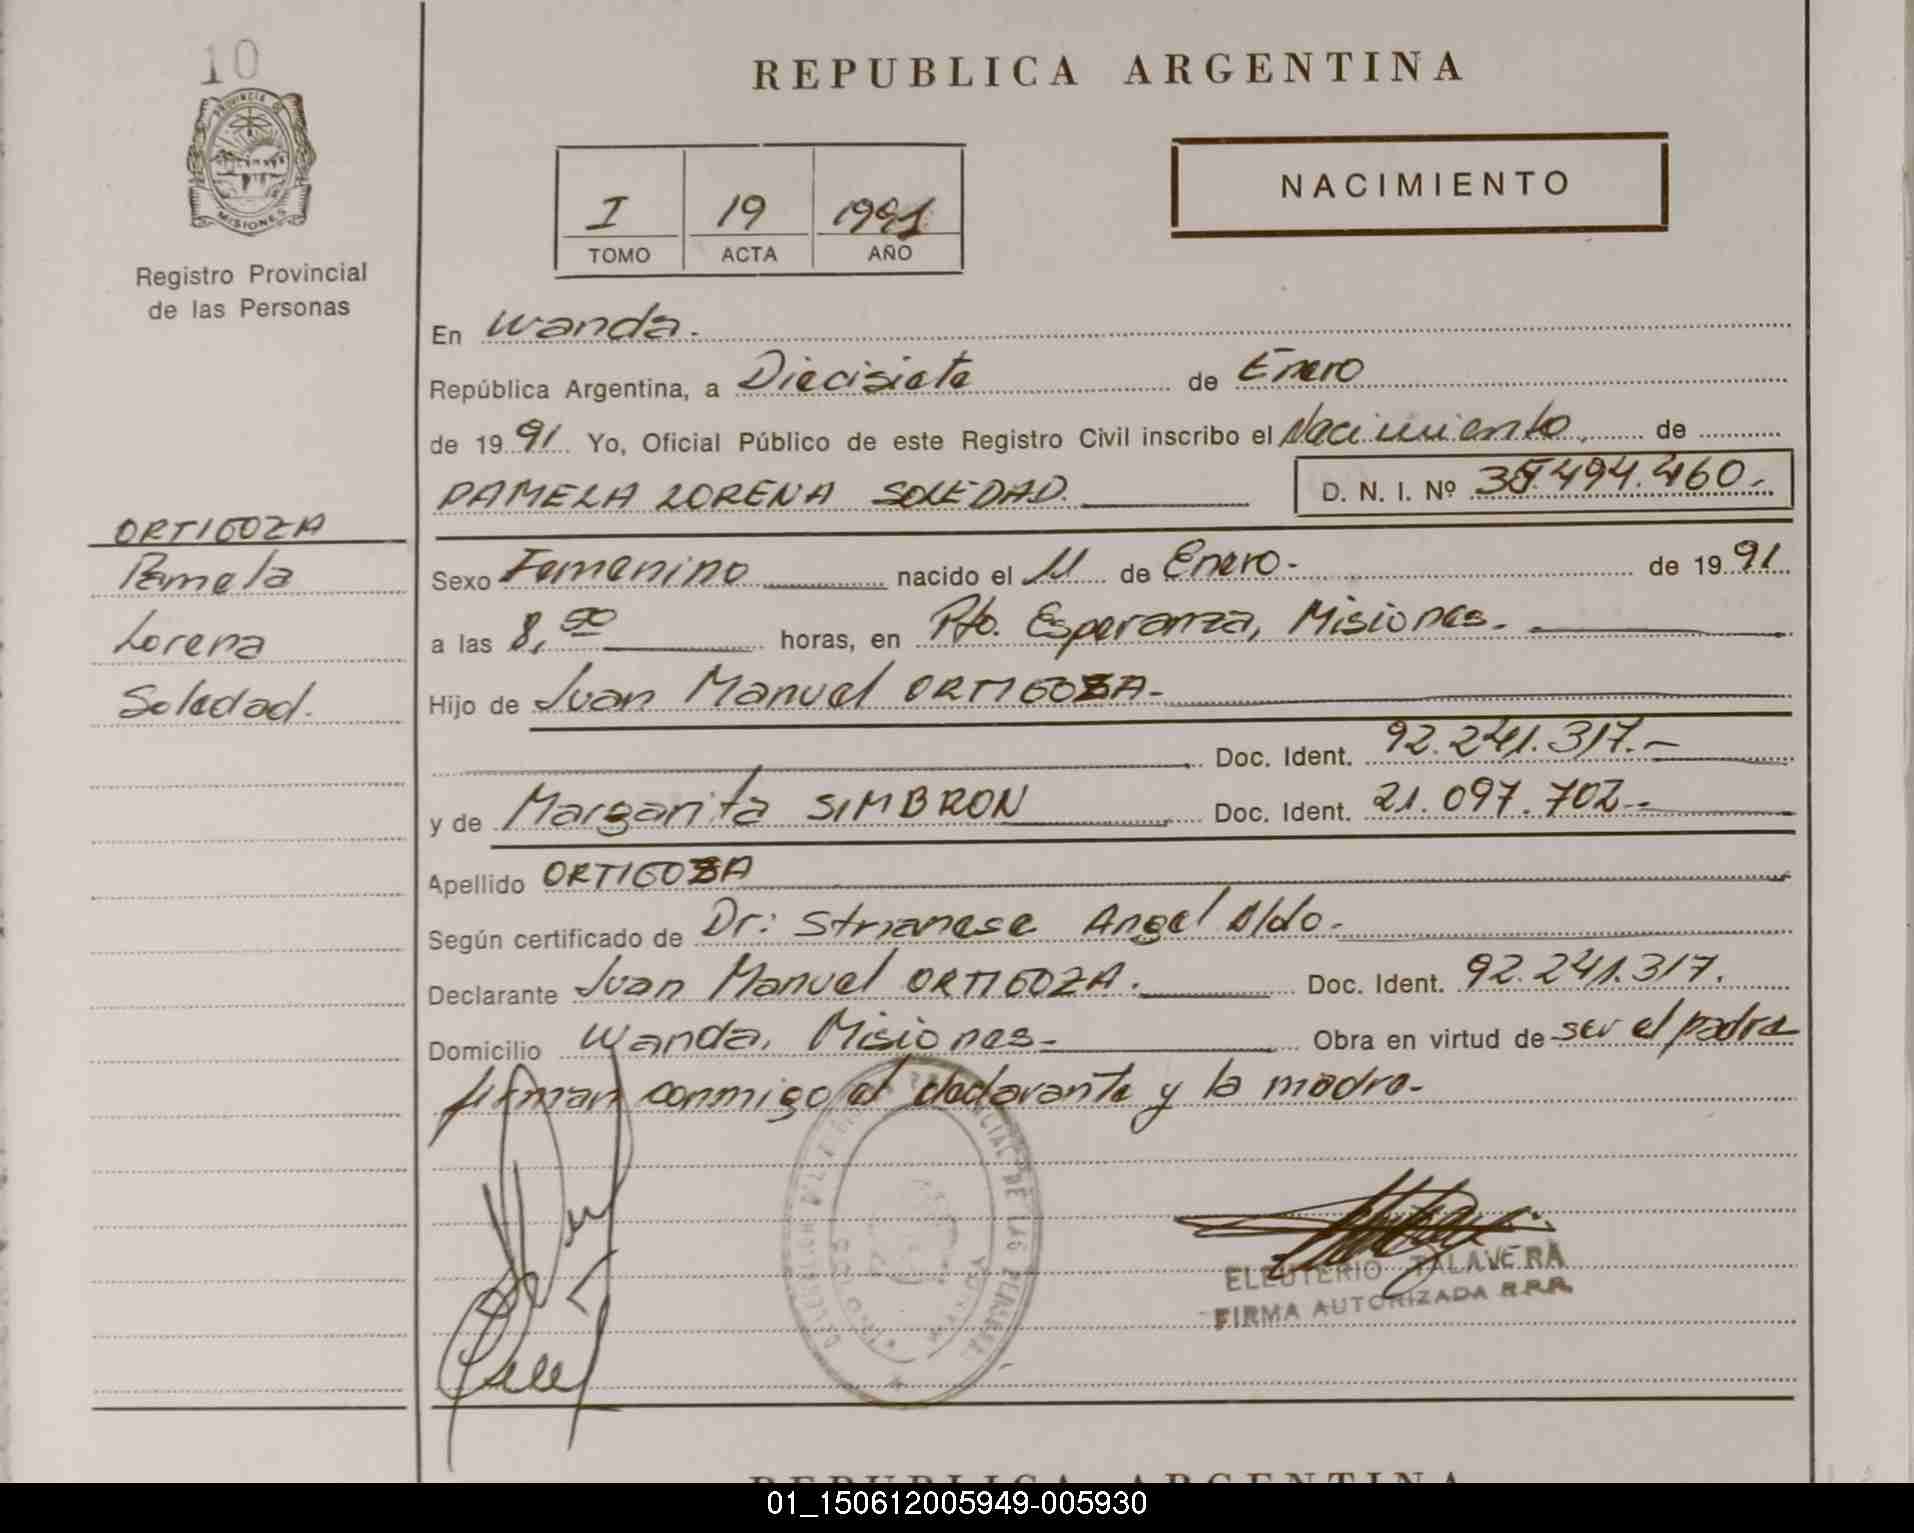 10
PROVINCIA DE
MISIONES
Registro Provincial
de las Personas
REPUBLICA ARGENTINA
I 19 1991
TOMO ACTA AÑO
NACIMIENTO
En Wanda.
República Argentina, a Diecisiete de Enero
de 1991 Yo, Oficial Público de este Registro Civil inscribo el Nacimiento de
PAMELA LORENA SOLEDAD. D. N. I. Nº 35.494.460.-
ORTIGOZA
Pamela
Lorena
Soledad.
Sexo Femenino nacido el 11 de Enero.- de 1991
a las 8, horas, en Pto. Esperanza, Misiones.-
Hijo de Juan Manuel ORTIGOZA-
Doc. Ident. 92.241.317.-
y de Margarita SIMBRON Doc. Ident. 21.097.702.-
Apellido ORTIGOZA
Según certificado de Dr: Strianese Angel Aldo.-
Declarante Juan Manuel ORTIGOZA. Doc. Ident. 92.241.317.
Domicilio Wanda, Misiones.- Obra en virtud de ser el padre
firman conmigo el declarante y la madre.-
ELEUTERIO TALAVERA
FIRMA AUTORIZADA R.P.P.
REPUBLICA ARGENTINA
01_150612005949-005930